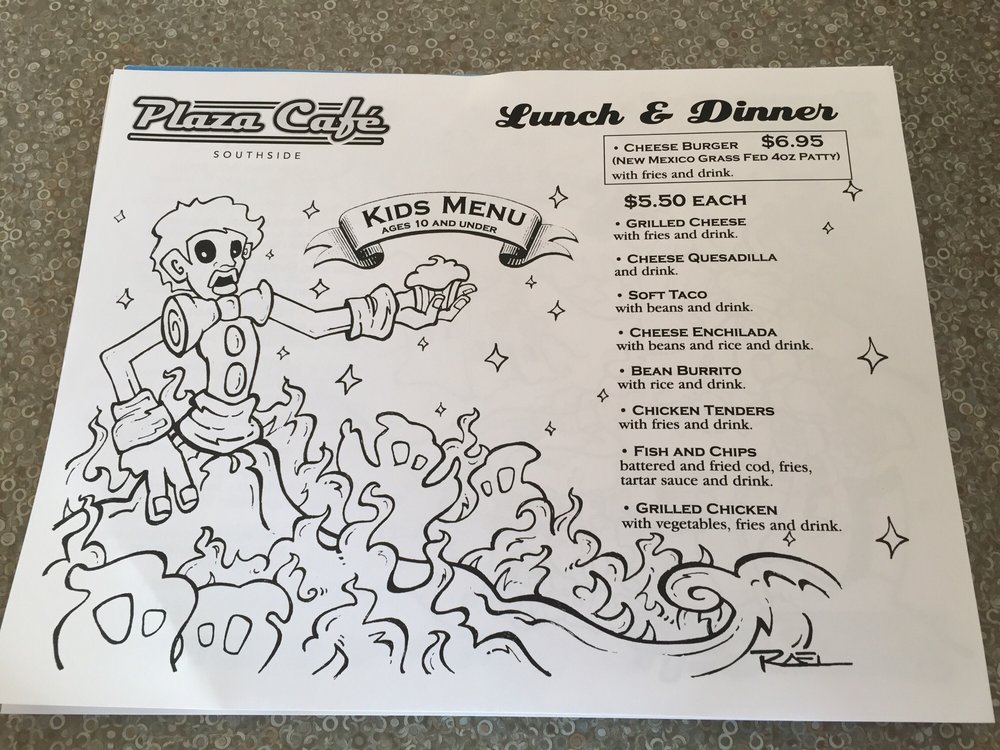 Plaza Café
SOUTHSIDE
KIDS MENU
AGES 10 AND UNDER
Lunch & Dinner
• CHEESE BURGER $6.95
(NEW MEXICO GRASS FED 4OZ PATTY)
with fries and drink.
$5.50 EACH
• GRILLED CHEESE
with fries and drink.
• CHEESE QUESADILLA
and drink.
• SOFT TACO
with beans and drink.
• CHEESE ENCHILADA
with beans and rice and drink.
• BEAN BURRITO
with rice and drink.
• CHICKEN TENDERS
with fries and drink.
• FISH AND CHIPS
battered and fried cod, fries,
tartar sauce and drink.
• GRILLED CHICKEN
with vegetables, fries and drink.
RAEL